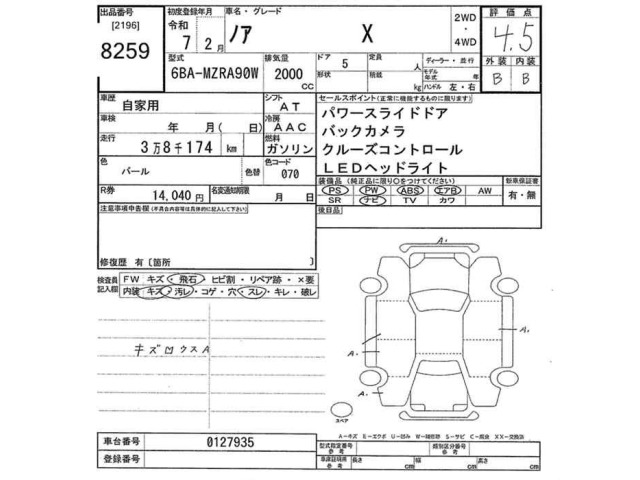 出品番号 初度登録年月 車名・グレード 2WD 評価点
[2196] 令和 ノア X ・ 4.5
8259 7 2月 4WD
型式 排気量 ドア 5 定員 人 ディーラー・並行 外装 内装
6BA-MZRA90W 2000 CC 形状 積載 kg モデル年式 年 ハンドル 左・右 B B
車歴 自家用 シフト AT セールスポイント(正常に機能するものに限ります)
車検 年 月( 日) 冷房 AAC パワースライドドア
走行 3万8千174 km 燃料 ガソリン バックカメラ
色 パール 色替 色コード 070 クルーズコントロール
LEDヘッドライト
R券 14,040円 名変通知期限 月 日 装備品(純正品に限り○をつけてください) 新車保証書
PS PW ABS エアB AW 有・無
SR ナビ TV カワ
注意事項申告欄(不具合内容等は具体的に記入して下さい) 後日品
修復歴 有[箇所 ]
検査員記入欄 FW キズ・飛石・ヒビ割・リペア跡・×要
内装 キズ・汚レ・コゲ・穴・スレ・キレ・破レ
キズ凹ウスA
A.
A. A.
A.
A.
スペア
車台番号 0127935
登録番号
型式指定番号 参考 類別区分番号 参考
車庫証明用 参考 長さ cm 幅 cm 高さ cm